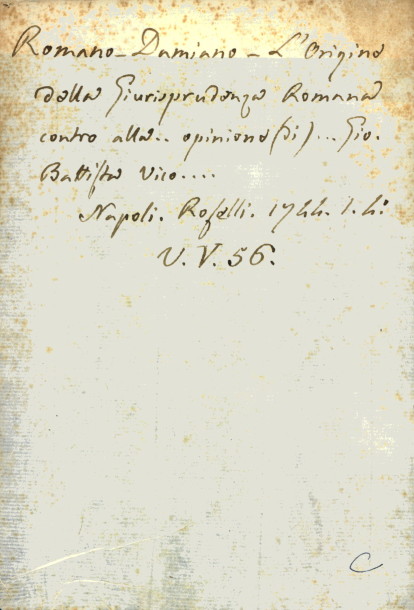 Romano - Damiano - L'Origine
della Giurisprudenza Romana
contro alla.. opinione (di)... Gio.
Battista Vico....
Napoli. Roselli. 1744. 1. 4:
V. V. 56.
C